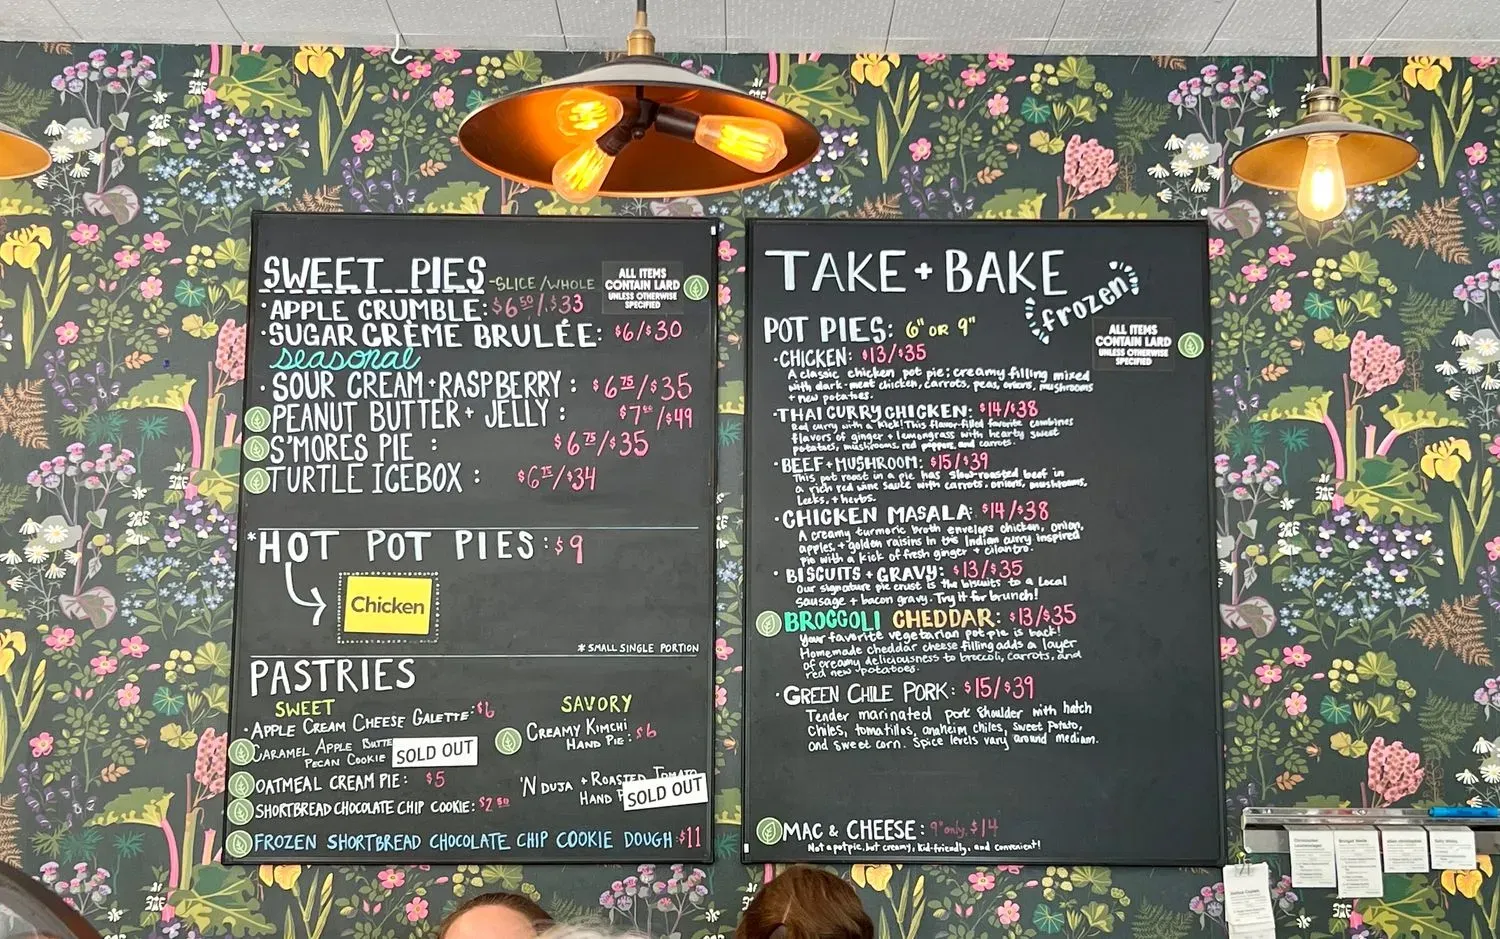 SWEET PIES -SLICE/WHOLE
ALL ITEMS
CONTAIN LARD
UNLESS OTHERWISE
SPECIFIED
· APPLE CRUMBLE: $6⁵⁰/$33
· SUGAR CRÈME BRULÉE: $6/$30
seasonal
· SOUR CREAM + RASPBERRY: $6⁷⁵/$35
PEANUT BUTTER + JELLY: $7⁰⁰/$49
S'MORES PIE : $6⁷⁵/$35
TURTLE ICEBOX : $6⁷⁵/$34
*HOT POT PIES: $9
Chicken
*SMALL SINGLE PORTION
PASTRIES
SWEET
· APPLE CREAM CHEESE GALETTE: $6
CARAMEL APPLE BUTTE
PECAN COOKIE SOLD OUT
OATMEAL CREAM PIE: $5
SHORTBREAD CHOCOLATE CHIP COOKIE: $2⁵⁰
SAVORY
CREAMY KIMCHI
HAND PIE: $6
'NDUJA + ROASTED TOMATO
HAND P SOLD OUT
FROZEN SHORTBREAD CHOCOLATE CHIP COOKIE DOUGH $11
TAKE + BAKE
frozen
ALL ITEMS
CONTAIN LARD
UNLESS OTHERWISE
SPECIFIED
POT PIES: 6" OR 9"
· CHICKEN: $13/$35
A classic chicken pot pie; creamy filling mixed
with dark-meat chicken, carrots, peas, onions, mushrooms
+ new potatoes.
· THAI CURRY CHICKEN: $14/$38
Red curry with a kick! This flavor-filled favorite combines
flavors of ginger + lemongrass with hearty sweet
potatoes, mushrooms, red peppers and carrots.
· BEEF + MUSHROOM: $15/$39
This pot roast in a pie has slow-roasted beef in
a rich red wine sauce with carrots, onions, mushrooms,
leeks, + herbs.
· CHICKEN MASALA: $14/$38
A creamy turmeric broth envelops chicken, onion,
apples, + golden raisins in this Indian curry inspired
pie with a kick of fresh ginger + cilantro.
· BISCUITS + GRAVY: $13/$35
Our signature pie crust is the biscuits to a local
sausage + bacon gravy. Try it for brunch!
BROCCOLI CHEDDAR: $13/$35
Your favorite vegetarian pot pie is back!
Homemade cheddar cheese filling adds a layer
of creamy deliciousness to broccoli, carrots, and
red new potatoes.
· GREEN CHILE PORK: $15/$39
Tender marinated pork shoulder with hatch
chiles, tomatillos, anaheim chiles, sweet potato,
and sweet corn. Spice levels vary around medium.
MAC & CHEESE: 9" only, $14
Not a pot pie, but creamy, kid-friendly, and convenient!